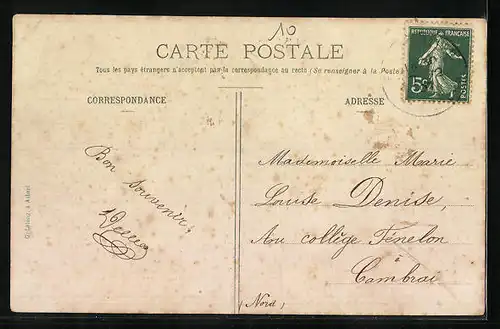 10
CARTE POSTALE
Tous les pays étrangers n'acceptent pas la correspondance au recto (Se renseigner à la Poste)
REPUBLIQUE FRANÇAISE
5c
POSTES
CORRESPONDANCE
ADRESSE
Bon souvenir,
Mademoiselle Marie
Louise Denise,
Au collège Fénelon
à
Cambrai
(Nord)